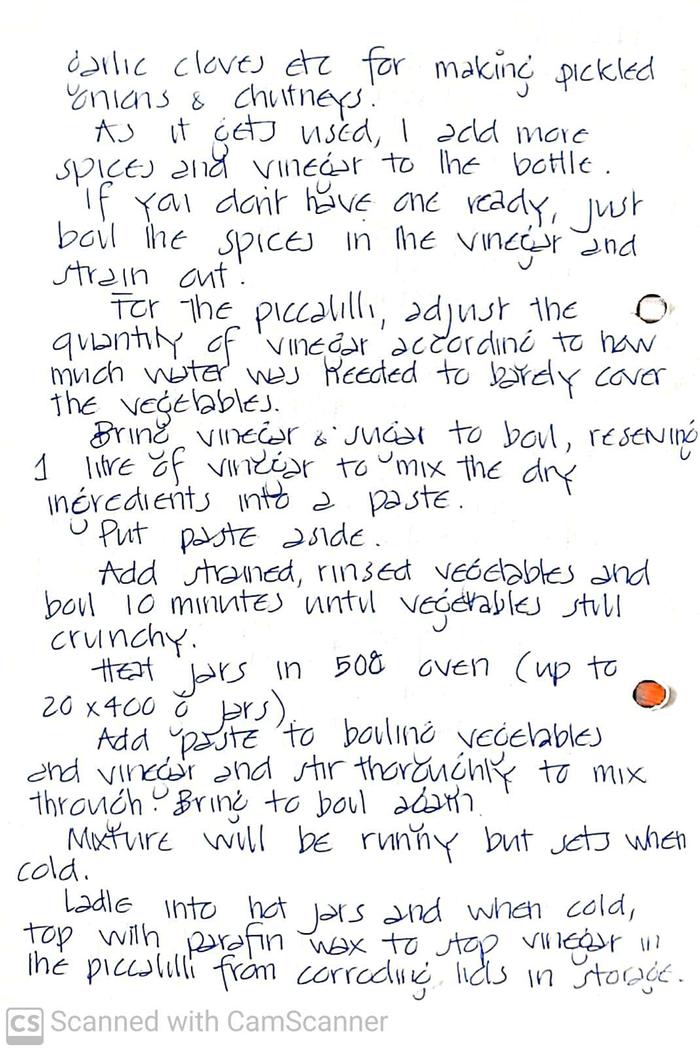 garlic cloves etc for making pickled
onions & chutneys.
As it gets used, I add more
spices and vinegar to the bottle.
If you don't have one ready, just
boil the spices in the vinegar and
strain out.
For the piccalilli, adjust the
quantity of vinegar according to how
much water was needed to barely cover
the vegetables.
Bring vinegar & sugar to boil, reserving
1 litre of vinegar to mix the dry
ingredients into a paste.
Put paste aside.
Add strained, rinsed vegetables and
boil 10 minutes until vegetables still
crunchy.
Heat jars in oven (up to
20 x 400 g jars)
Add paste to boiling vegetables
and vinegar and stir thoroughly to mix
through. Bring to boil again.
Mixture will be runny but sets when
cold.
Ladle into hot jars and when cold,
top with parafin wax to stop vinegar in
the piccalilli from corroding lids in storage.
CS Scanned with CamScanner